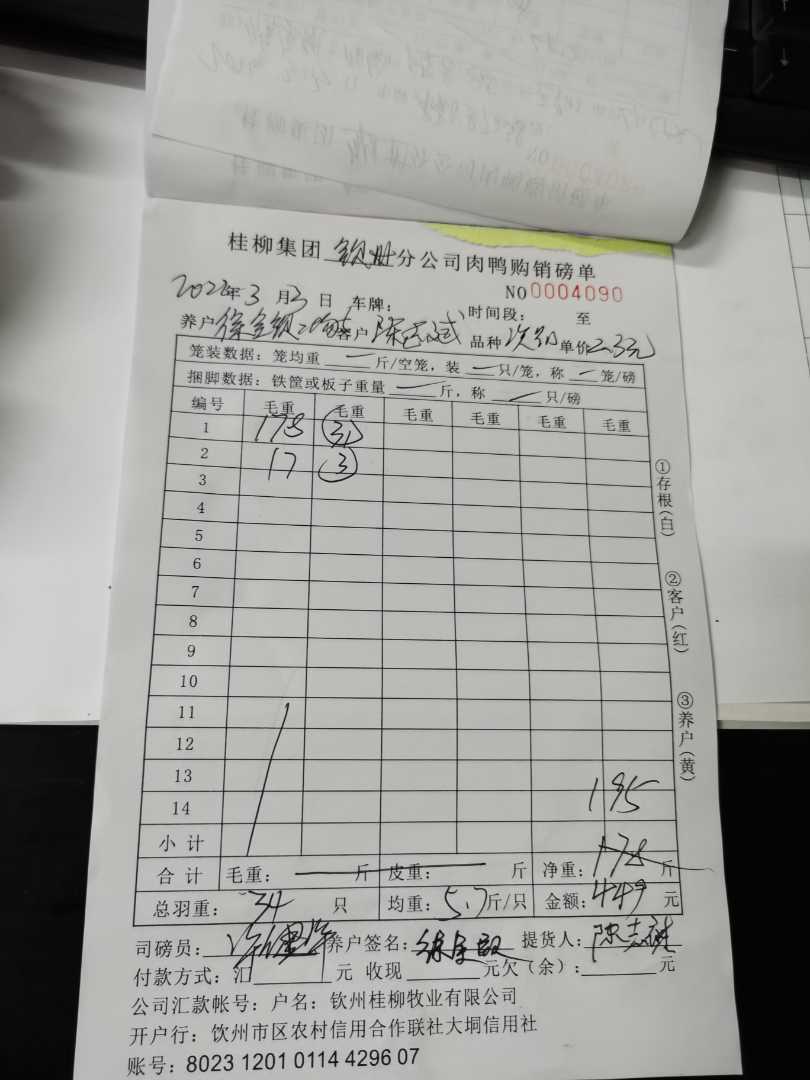 桂柳集团 钦州 分公司肉鸭购销磅单
NO 0004090
2022年3月3日 车牌: 时间段: 至
养户 徐全银 客户 陈志斌 品种 次鸭 单价 2.3元
笼装数据: 笼均重 一 斤/空笼, 装 一 只/笼, 称 一 笼/磅
捆脚数据: 铁筐或板子重量 一 斤, 称 一 只/磅
编号 毛重 毛重 毛重 毛重 毛重 毛重
1 178 31
2 17 3
3
4
5
6
7
8
9
10
11
12
13
14 195
小计
合计 毛重: 斤 皮重: 斤 净重: 178 斤
总羽重: 34 只 均重: 5.7 斤/只 金额: 449 元
司磅员: 养户签名: 提货人: 陈志斌
付款方式: 汇 元 收现 元欠(余): 元
公司汇款帐号: 户名: 钦州桂柳牧业有限公司
开户行: 饮州市区农村信用合作联社大垌信用社
账号: 8023 1201 0114 4296 07
①存根(白)
②客户(红)
③养户(黄)